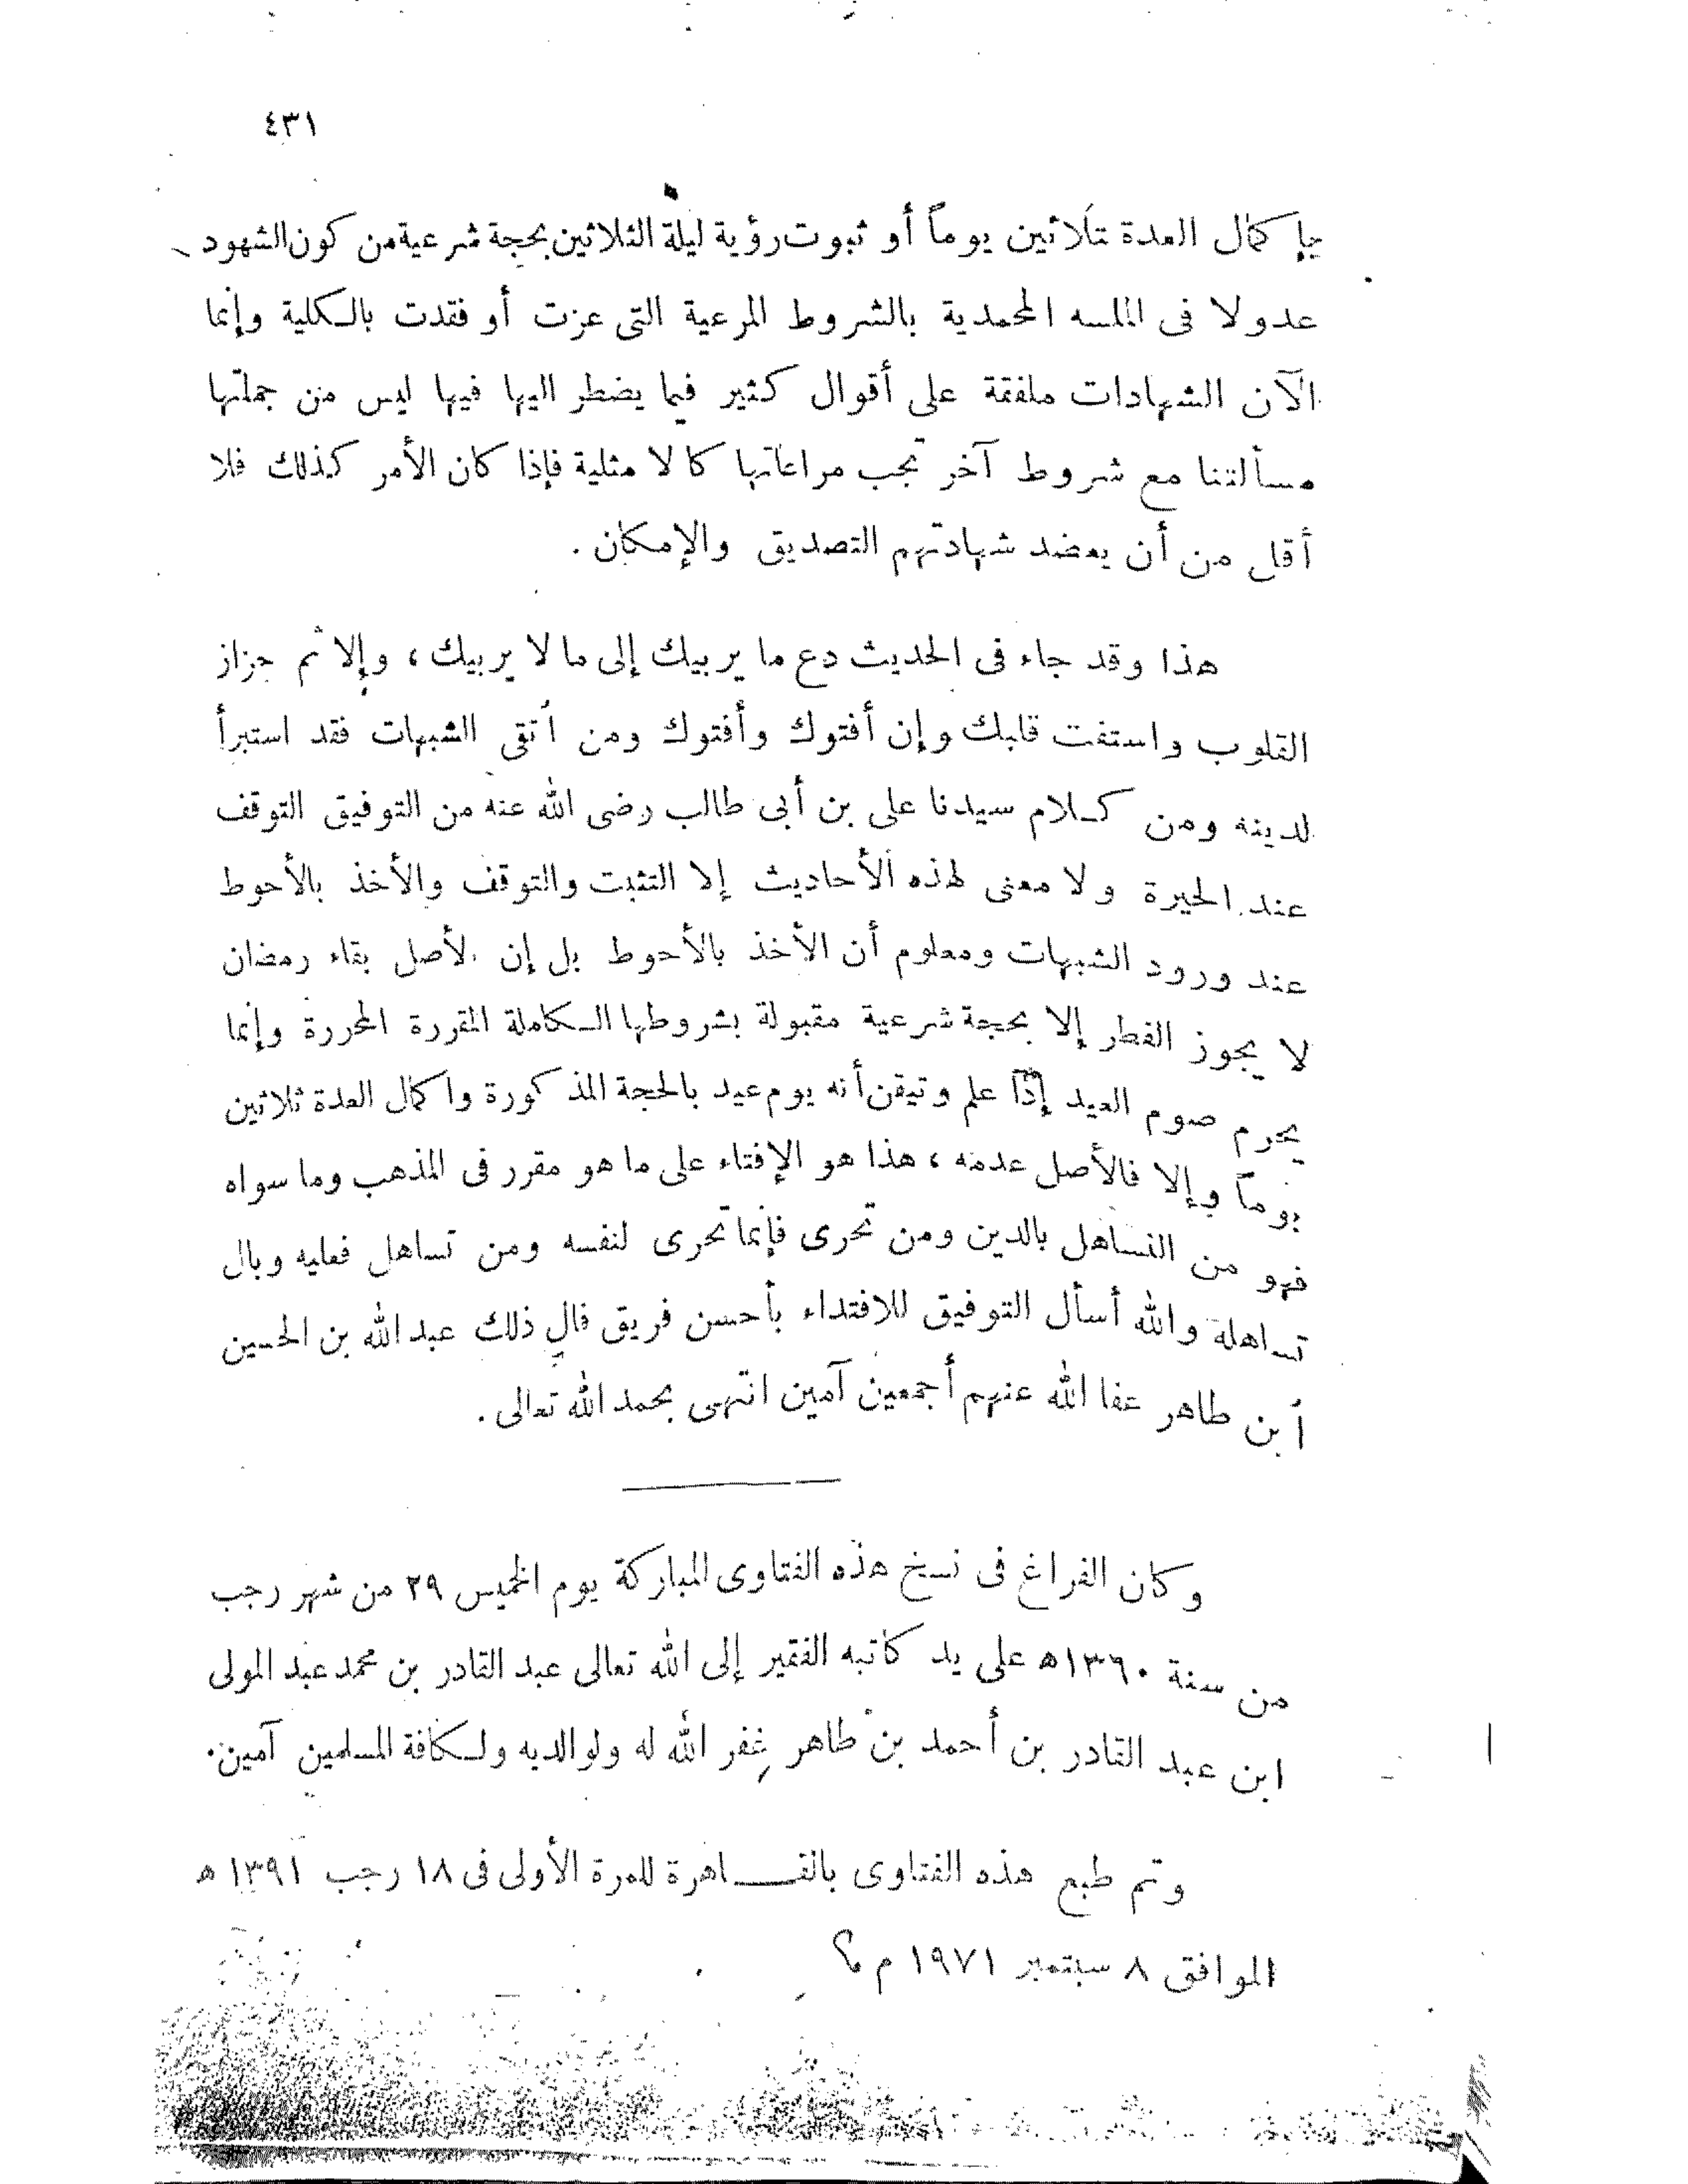 ٤٣١
بإكمال العدة ثلاثين يوماً أو ثبوت رؤية ليلة الثلاثين بحجة شرعية من كون الشهود
عدولا فى المحمدية بالشروط المرعية التى عزت أو فقدت بالكلية وإنما
الآن الشهادات ملفقة على أقوال كثير فيما يضطر اليها فيها ليس من جملتها
مسألتنا مع شروط آخر تجب مراعاتها كالا مثلية فإذا كان الأمر كذلك فلا
أقل من أن يعضد شهادتهم التصديق والإمكان .
هذا وقد جاء فى الحديث دع ما يربيك إلى ما لا يربيك ، وإلا ثم حزاز
القلوب واستفت قلبك وإن أفتوك وأفتوك ومن اتقى الشبهات فقد استبرأ
لدينه ومن كلام سيدنا على بن أبى طالب رضى الله عنه من التوفيق التوقف
عند الحيرة ولا معنى لهذه الأحاديث إلا التثبت والتوقف والأخذ بالأحوط
عند ورود الشبهات ومعلوم أن الأخذ بالأحوط بل إن الأصل بقاء رمضان
لا يجوز الفطر إلا بحجة شرعية مقبولة بشروطها الكاملة المقررة المحررة وإنما
يحرم صوم العيد إذا علم وتيقن أنه يوم عيد بالحجة المذكورة واكمال العدة ثلاثين
يوماً وإلا فالأصل عدمه ، هذا هو الإفتاء على ما هو مقرر فى المذهب وما سواه
فهو من التساهل بالدين ومن تحرى فإنما تحرى لنفسه ومن تساهل فعليه وبال
تساهله والله أسأل التوفيق للاقتداء بأحسن فريق قال ذلك عبد الله بن الحسين
ابن طاهر عفا الله عنهم أجمعين آمين انتهى بحمد الله تعالى .
وكان الفراغ فى نسخ هذه الفتاوى المباركة يوم الخميس ٢٩ من شهر رجب
من سنة ١٣٦٠ھ على يد كاتبه الفقير إلى الله تعالى عبد القادر بن محمد عبد المولى
ابن عبد القادر بن أحمد بن طاهر غفر الله له ولوالديه ولكافة المسلمين آمين .
وتم طبع هذه الفتاوى بالقـــاهرة للمرة الأولى فى ١٨ رجب ١٣٩١ ھ
الموافق ٨ سبتمبر ١٩٧١ م